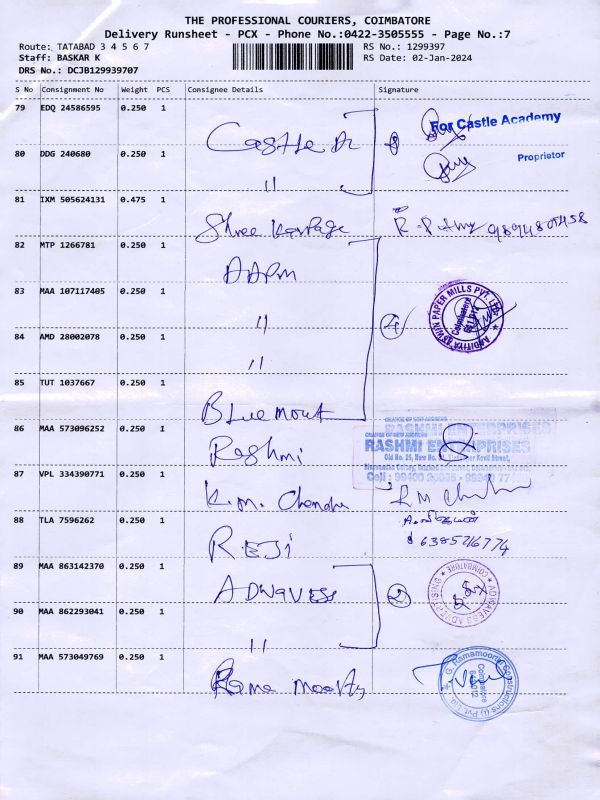 THE PROFESSIONAL COURIERS, COIMBATORE
Delivery Runsheet - PCX - Phone No.:0422-3505555 - Page No.:7
Route: TATABAD 3 4 5 6 7
RS No.: 1299397
Staff: BASKAR K
RS Date: 02-Jan-2024
DRS No.: DCJB129939707
S No Consignment No Weight PCS Consignee Details Signature
79 EDQ 24586595 0.250 1 Castle
For Castle Academy
80 DDG 240680 0.250 1 "
Proprietor
81 IXM 505624131 0.475 1 Shree
82 MTP 1266781 0.250 1 AAPM
83 MAA 107117405 0.250 1 "
ADDITIYA ASWIN PAPER MILLS PVT. LTD.
Coimbatore
4
84 AMD 28002078 0.250 1 "
85 TUT 1037667 0.250 1 Blue mout
86 MAA 573096252 0.250 1 Rashmi
RASHMI ENTERPRISES
87 VPL 334390771 0.250 1 K.M. Chendra
88 TLA 7596262 0.250 1 REJI
6385716774
89 MAA 863142370 0.250 1 ADWAVESS
2
COIMBATORE
90 MAA 862293041 0.250 1 "
91 MAA 573049769 0.250 1 Rama Moorty
G. Ramamoorthi Constructions (I) Pvt. Ltd.
Coimbatore